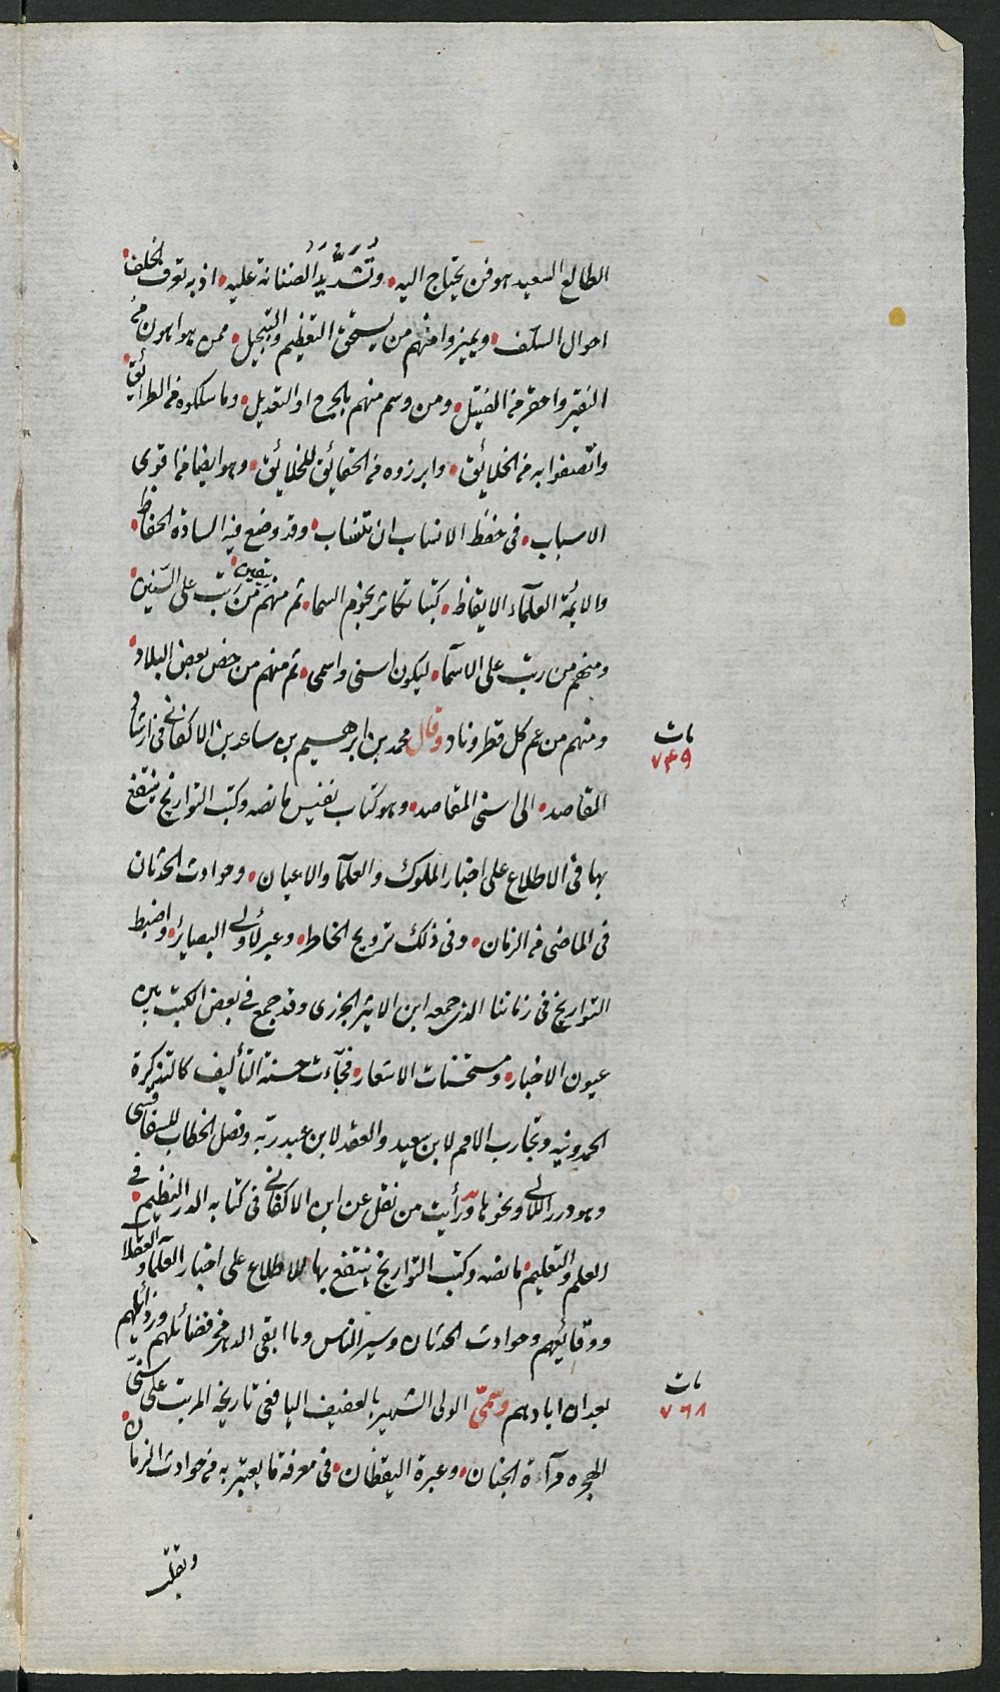 الطالع السعيد هو فن يحتاج اليه وتُشَدُّ يدُ الضنانة عليه اذ به تعرف الخلف
احوال السلف ويميزوا منهم من يستحق التعظيم والتبجيل ممن هو اهون من
النقير واحقر من الفتيل ومن وسم منهم بالجرح او التعديل وما سلكوه من الطرائق
واتصفوا به من الخلائق وابرزوه من الحقائق للخلائق وهو ايضا من اقوى
الاسباب في حفظ الانساب ان تنساب وقد وضع فيه السادة الحفاظ
والائمة العلماء الايقاظ كتبا تكاثر نجوم السما ثم منهم من رتب على السنين
ومنهم من رتب على الاسماء ليكون اسنى واسمى ثم منهم من خص بعض البلاد
ومنهم من عم كل قطر وناد وقال محمد بن ابراهيم بن ساعد بن الاكفاني في ارشاد
مات
٧٤٩
المقاصد الى اسنى المقاصد وهو كتاب نفيس ما نصه وكتب التواريخ ينتفع
بها في الاطلاع على اخبار الملوك والعلماء والاعيان وحوادث الحدثان
في الماضي من الزمان وفي ذلك ترويح الخاطر وعبر لأولي البصائر واضبط
التواريخ في زماننا الذي جمعه ابن الاثير الجزري وقد جمع في بعض الكتب بين
عيون الاخبار ومستحسنات الاشعار فجآءت حسنة التأليف كالتذكرة
الحمدونية وتجارب الامم لابن سعيد والعقد لابن عبد ربه وفصل الخطاب للتيفاشي
وهو درر اللآلي ونحوها ورأيت من نقل عن ابن الاكفاني في كتابه الدر النظيم في
العلم والتعليم ما نصه وكتب التواريخ ينتفع بها للاطلاع على اخبار العلماء والعقلا
ووقائعهم وحوادث الحدثان وسير الناس وما ابقى الدهر من فضائلهم ورذائلهم
بعد ان ابادهم وسمّى الولي الشهير بالعفيف اليافعي تاريخه المرتب على سني
مات
٧٦٨
الهجره مرآءة الجنان وعبرة اليقظان في معرفة ما يعتبر به من حوادث الزمان
وتقلب